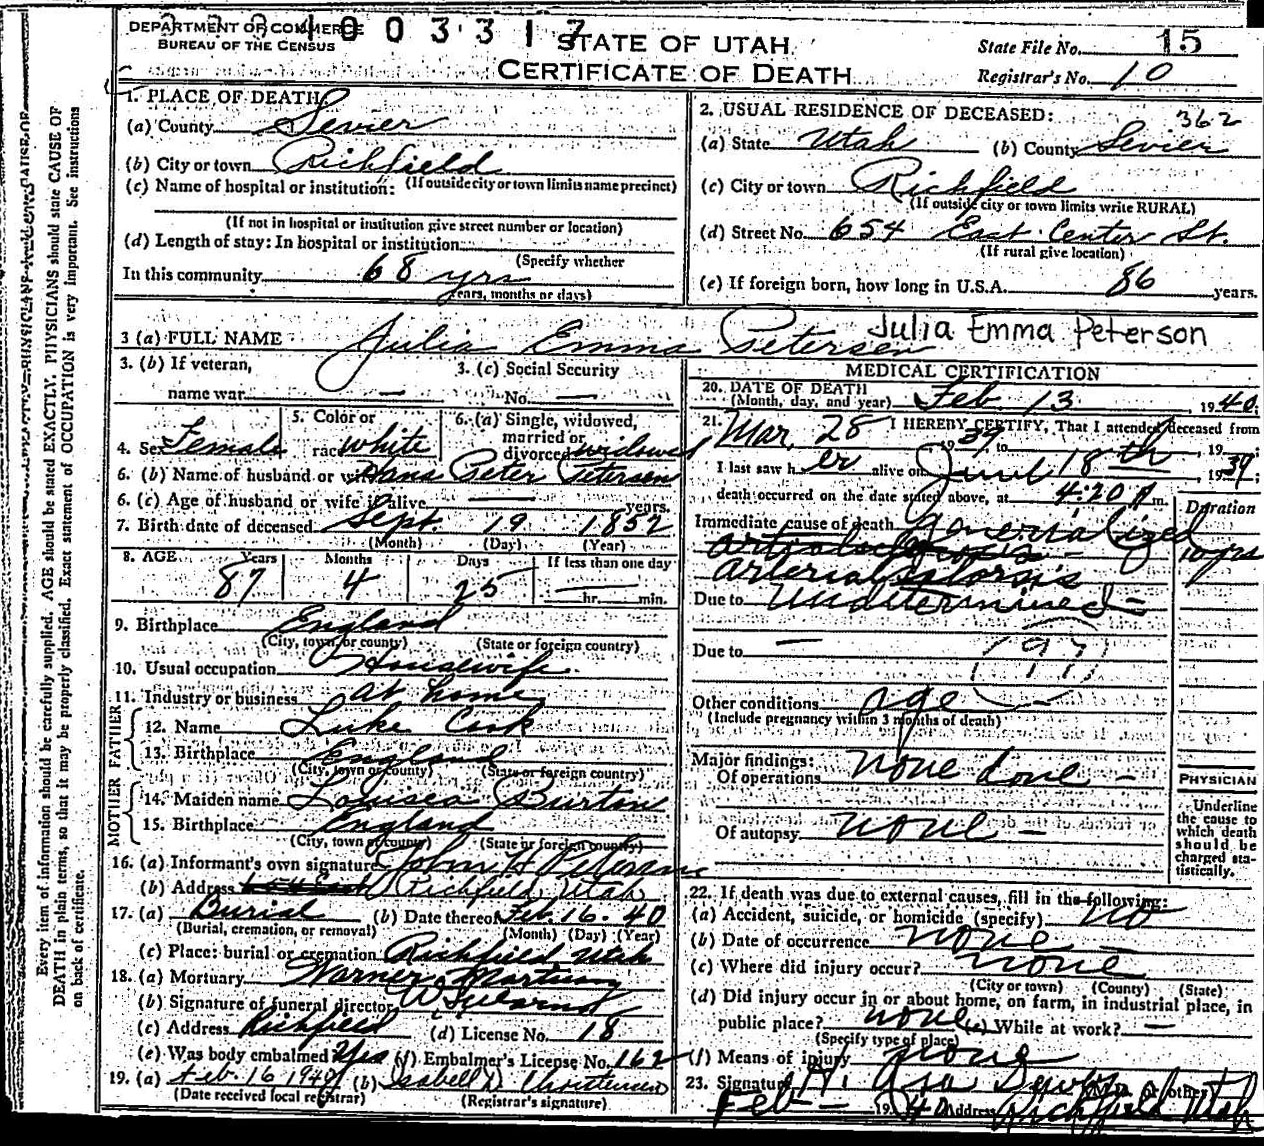 DEPARTMENT OF COMMERCE
BUREAU OF THE CENSUS
1003317
STATE OF UTAH
CERTIFICATE OF DEATH
State File No. 15
Registrar's No. 10
1. PLACE OF DEATH
(a) County Sevier
(b) City or town Richfield
(c) Name of hospital or institution: (If outside city or town limits name precinct)
(If not in hospital or institution give street number or location)
(d) Length of stay: In hospital or institution
(Specify whether
In this community 68 yrs
years, months or days)
2. USUAL RESIDENCE OF DECEASED:
362
(a) State Utah (b) County Sevier
(c) City or town Richfield
(If outside city or town limits write RURAL)
(d) Street No. 654 East Center St.
(If rural give location)
(e) If foreign born, how long in U.S.A. 86 years.
3 (a) FULL NAME Julia Emma Petersen Julia Emma Peterson
3. (b) If veteran, name war —
3. (c) Social Security No. —
4. Sex Female
5. Color or race white
6. (a) Single, widowed, married or divorced widowed
6. (b) Name of husband or wife Hans Peter Petersen
6. (c) Age of husband or wife if alive — years.
7. Birth date of deceased Sept. 19 1852
(Month) (Day) (Year)
8. AGE Years Months Days If less than one day
87 4 25 — hr. min.
9. Birthplace England
(City, town or county) (State or foreign country)
10. Usual occupation Housewife
11. Industry or business at home
FATHER
12. Name Luke Cook
13. Birthplace England
(City, town or county) (State or foreign country)
MOTHER
14. Maiden name Louisea Burton
15. Birthplace England
(City, town or county) (State or foreign country)
16. (a) Informant's own signature John H Petersen
(b) Address Richfield, Utah
17. (a) Burial (b) Date thereof Feb. 16. 40
(Burial, cremation, or removal) (Month) (Day) (Year)
(c) Place: burial or cremation Richfield Utah
18. (a) Mortuary Warner Mortuary
(b) Signature of funeral director
(c) Address Richfield (d) License No. 18
(e) Was body embalmed Yes (f) Embalmer's License No. 162
19. (a) Feb. 16 1940 (b) Isabell D Christensen
(Date received local registrar) (Registrar's signature)
MEDICAL CERTIFICATION
20. DATE OF DEATH
(Month, day, and year) Feb. 13, 1940;
21. I HEREBY CERTIFY, That I attended deceased from
Mar. 28 1939, to , 19 ;
I last saw her alive on June 18th, 1939;
death occurred on the date stated above, at 4:20 P m.
Duration
Immediate cause of death generialized
10 yrs
Due to Undetermined —
Due to —
(97)
Other conditions age —
(Include pregnancy within 3 months of death)
Major findings:
Of operations none done —
Of autopsy none —
PHYSICIAN
Underline
the cause to
which death
should be
charged sta-
tistically.
22. If death was due to external causes, fill in the following:
(a) Accident, suicide, or homicide (specify) no
(b) Date of occurrence none
(c) Where did injury occur? none
(City or town) (County) (State)
(d) Did injury occur in or about home, on farm, in industrial place, in
public place? none (e) While at work? —
(Specify type of place)
(f) Means of injury none
23. Signature H. Asa Dewey
Feb — 1940 Address Richfield Utah
Every item of information should be carefully supplied. AGE should be stated EXACTLY. PHYSICIANS should state CAUSE OF
DEATH in plain terms, so that it may be properly classified. Exact statement of OCCUPATION is very important. See instructions
on back of certificate.